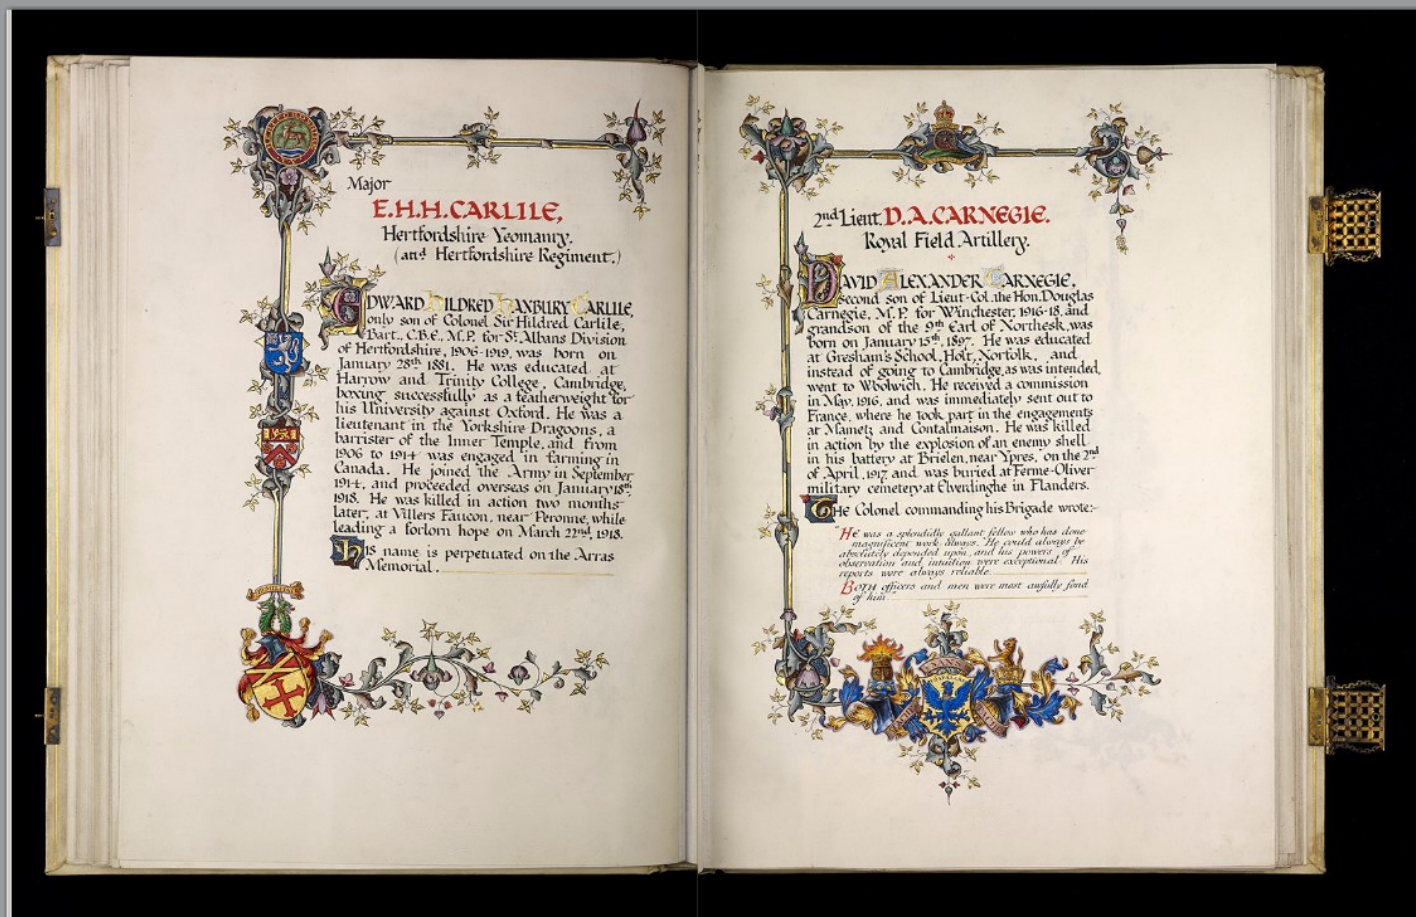 Major
E.H.H.CARLILE,
Hertfordshire Yeomanry.
(and Hertfordshire Regiment.)
EDWARD HILDRED HANBURY CARLILE,
only son of Colonel Sir Hildred Carlile,
Bart., C.B.E., M.P. for St. Albans Division
of Hertfordshire, 1906-1919, was born on
January 28th 1881. He was educated at
Harrow and Trinity College, Cambridge,
boxing successfully as a featherweight for
his University against Oxford. He was a
lieutenant in the Yorkshire Dragoons, a
barrister of the Inner Temple, and from
1906 to 1914 was engaged in farming in
Canada. He joined the Army in September
1914, and proceeded overseas on January 18th
1918. He was killed in action two months
later, at Villers Faucon, near Peronne, while
leading a forlorn hope on March 22nd, 1918.
His name is perpetuated on the Arras
Memorial.
2nd Lieut. D.A.CARNEGIE.
Royal Field Artillery.
DAVID ALEXANDER CARNEGIE,
second son of Lieut-Col. the Hon. Douglas
Carnegie, M.P. for Winchester, 1916-18, and
grandson of the 9th Earl of Northesk, was
born on January 15th, 1897. He was educated
at Gresham's School, Holt, Norfolk, and
instead of going to Cambridge, as was intended,
went to Woolwich. He received a commission
in May, 1916, and was immediately sent out to
France, where he took part in the engagements
at Mametz and Contalmaison. He was killed
in action by the explosion of an enemy shell
in his battery at Brielen, near Ypres, on the 2nd
of April, 1917, and was buried at Ferme-Olivier
military cemetery at Elverdinghe in Flanders.
THE Colonel commanding his Brigade wrote:-
"He was a splendidly gallant fellow who has done
magnificent work always. He could always be
absolutely depended upon, and his powers of
observation and intuition were exceptional. His
reports were always reliable.
BOTH officers and men were most awfully fond
of him"